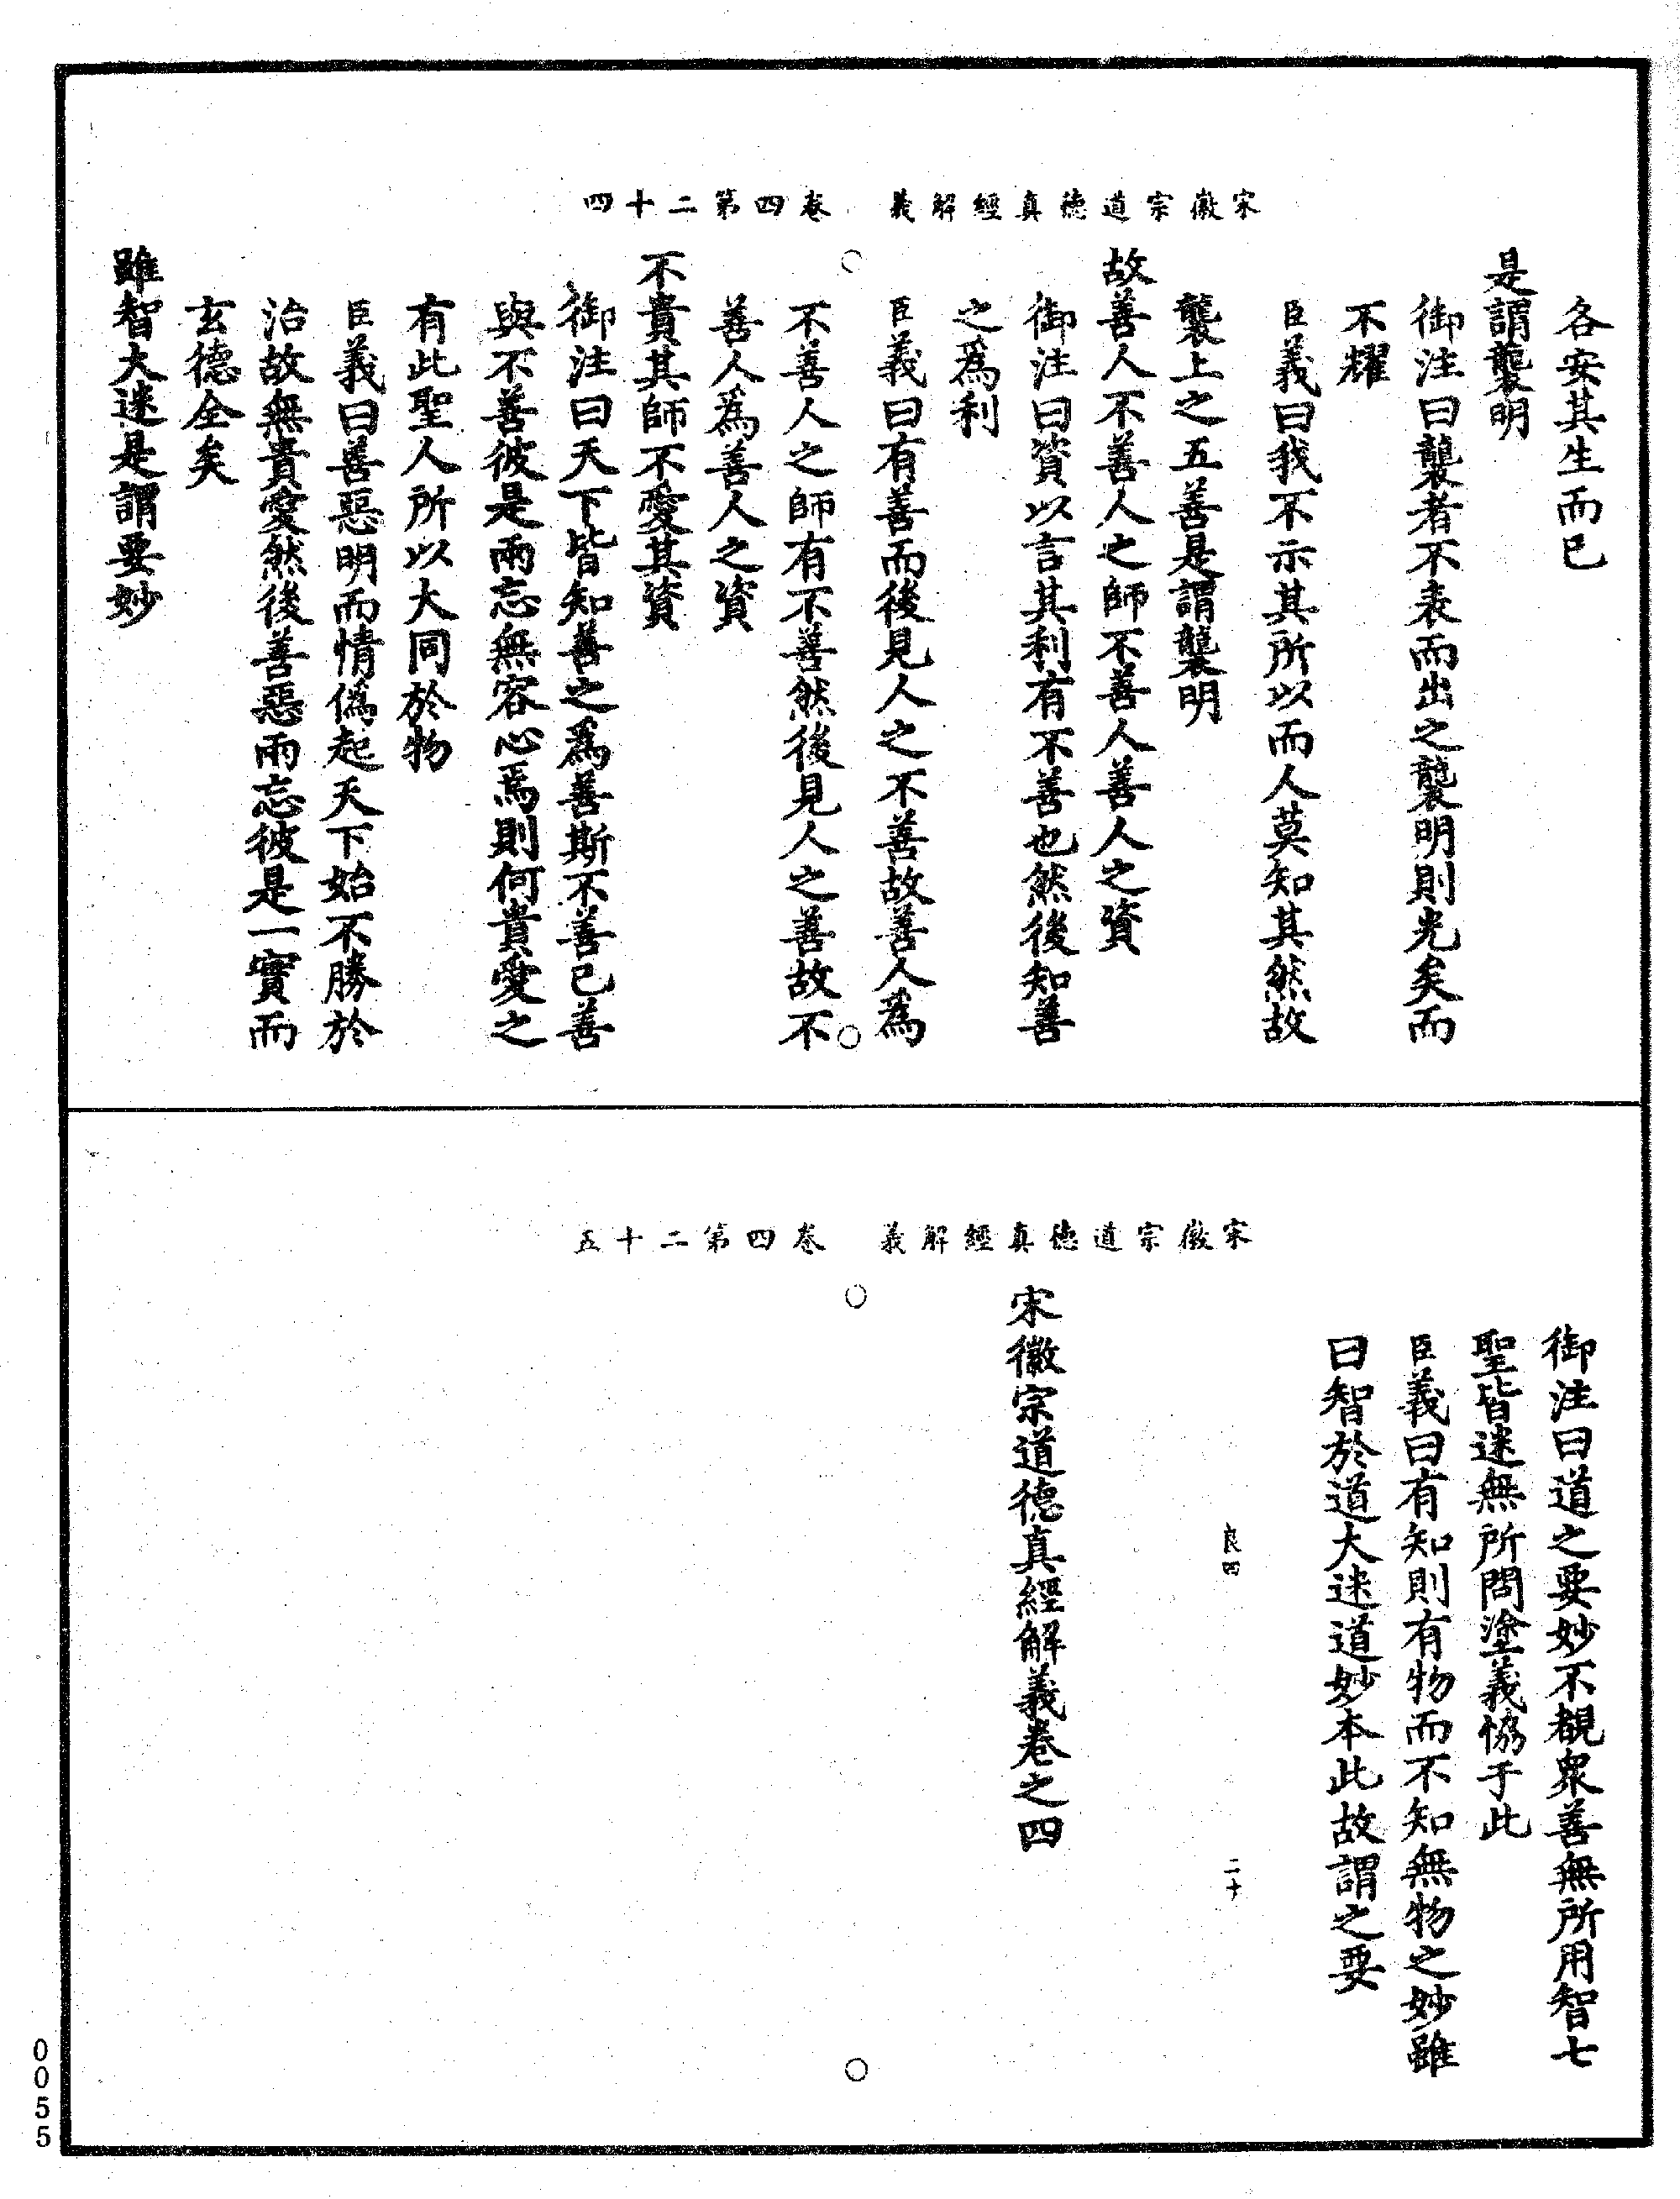 宋徽宗道德真經解義　卷四第二十四
各安其生而已
是謂襲明
御注曰襲者不表而出之襲明則光矣而
不耀
臣義曰我不示其所以而人莫知其然故
襲上之五善是謂襲明
故善人不善人之師不善人善人之資
御注曰資以言其利有不善也然後知善
之為利
臣義曰有善而後見人之不善故善人為
不善人之師有不善然後見人之善故不
善人為善人之資
不貴其師不愛其資
御注曰天下皆知善之為善斯不善已善
與不善彼是兩忘無容心焉則何貴愛之
有此聖人所以大同於物
臣義曰善惡明而情偽起天下始不勝於
治故無貴愛然後善惡兩忘彼是一實而
玄德全矣
雖智大迷是謂要妙
宋徽宗道德真經解義　卷四第二十五
御注曰道之要妙不覩衆善無所用智七
聖皆迷無所問塗義協于此
臣義曰有知則有物而不知無物之妙雖
曰智於道大迷道妙本此故謂之要
良四　二十
宋徽宗道德真經解義卷之四
0055